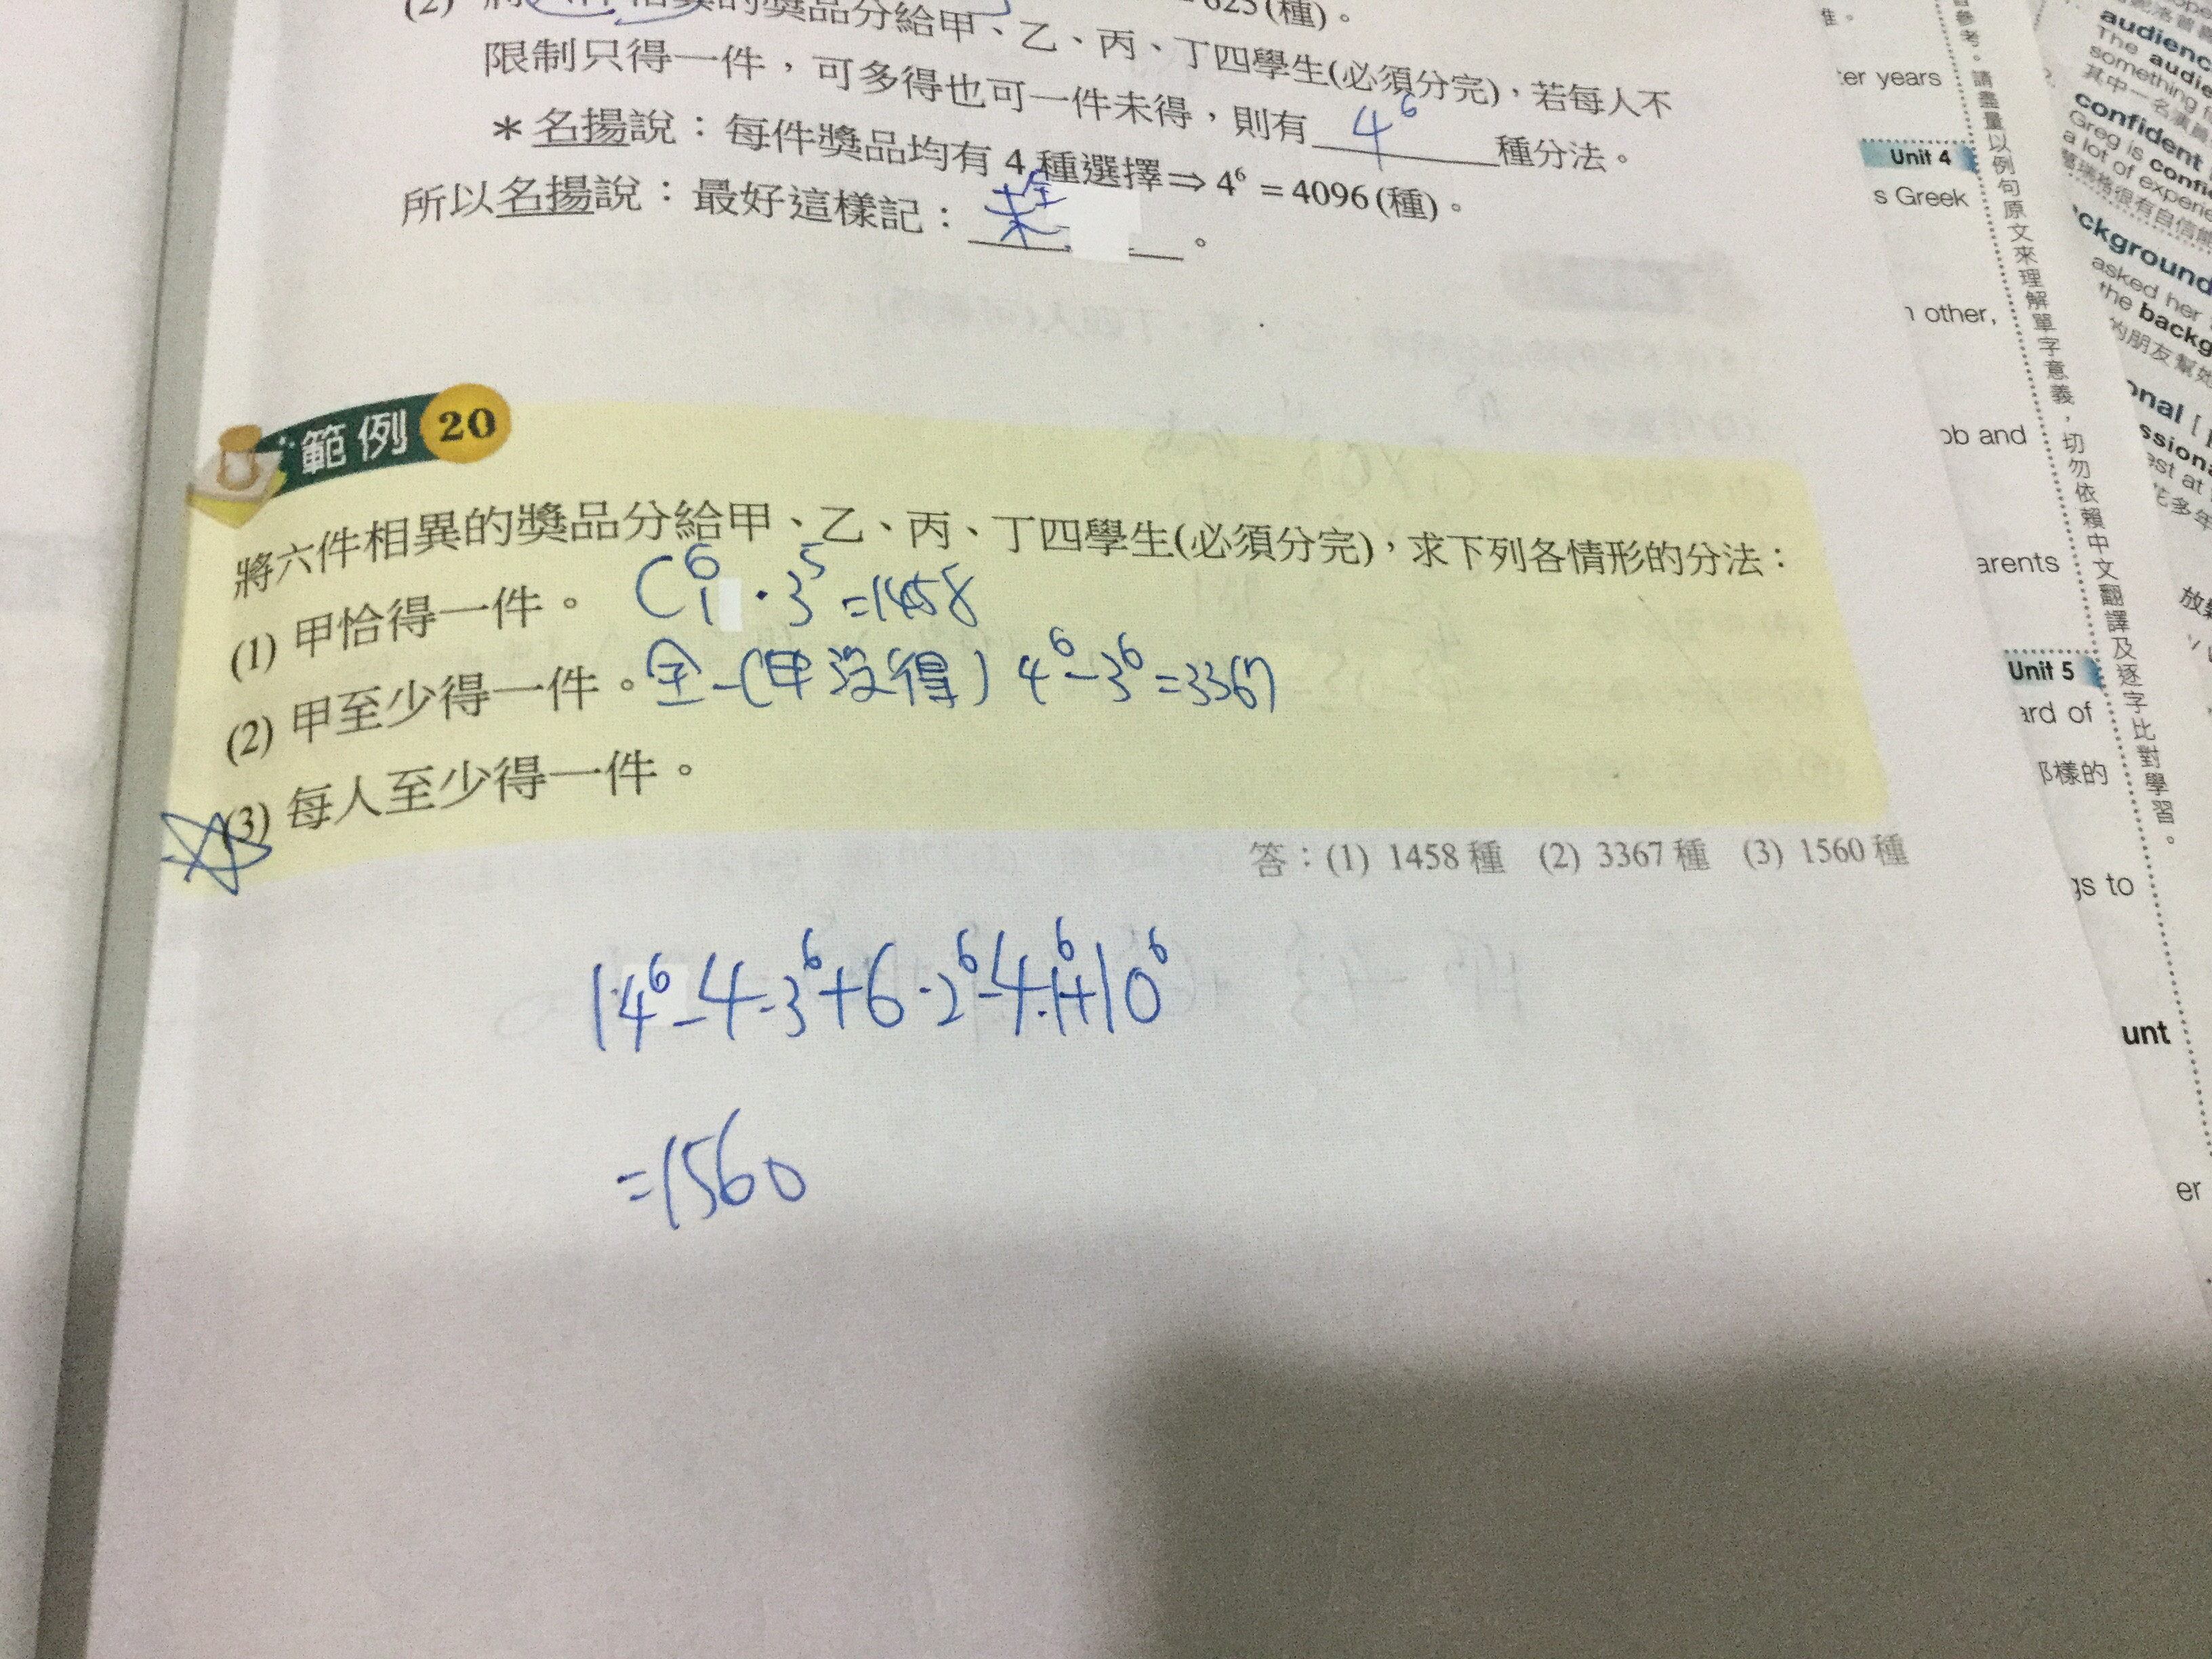 分給甲、乙、丙、丁四學生(必須分完),若每人不
限制只得一件,可多得也可一件未得,則有 4⁶ 種分法。
*名揚說:每件獎品均有 4 種選擇⇒ 4⁶ = 4096 (種)。
所以名揚說:最好這樣記: 。
範例 20
將六件相異的獎品分給甲、乙、丙、丁四學生(必須分完),求下列各情形的分法:
(1) 甲恰得一件。 C⁶₁ · 3⁵ = 1458
(2) 甲至少得一件。全-(甲沒得) 4⁶-3⁶=3367
(3) 每人至少得一件。
答:(1) 1458 種 (2) 3367 種 (3) 1560 種
1·4⁶-4·3⁶+6·2⁶-4·1⁶+1·0⁶
=1560
參考。請盡量以例句原文來理解單字意義,切勿依賴中文翻譯及逐字比對學習。
er years
Unit 4
s Greek
other,
ob and
arents
Unit 5
ard of
樣的
gs to
unt
er
The audie
something
其中一名演員
confident
Greg is confi
a lot of experie
很有自信
ckground
asked her
the backg
的朋友幫她
onal
ssiona
est at
花多年